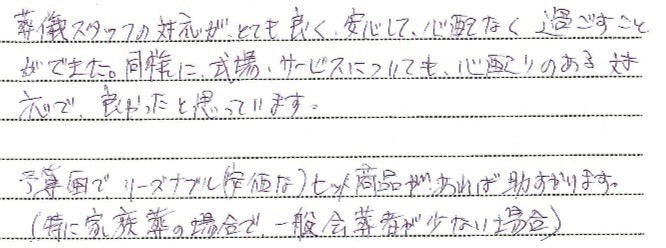 葬儀スタッフの対応が、とても良く、安心して、心配なく過ごすこと
ができた。同様に、式場、サービスについても、心配りのある対
応で、良かったと思っています。
予算面で リーズナブル(安価な)セット商品があれば助かります。
(特に家族葬の場合で、一般会葬者が少ない場合)